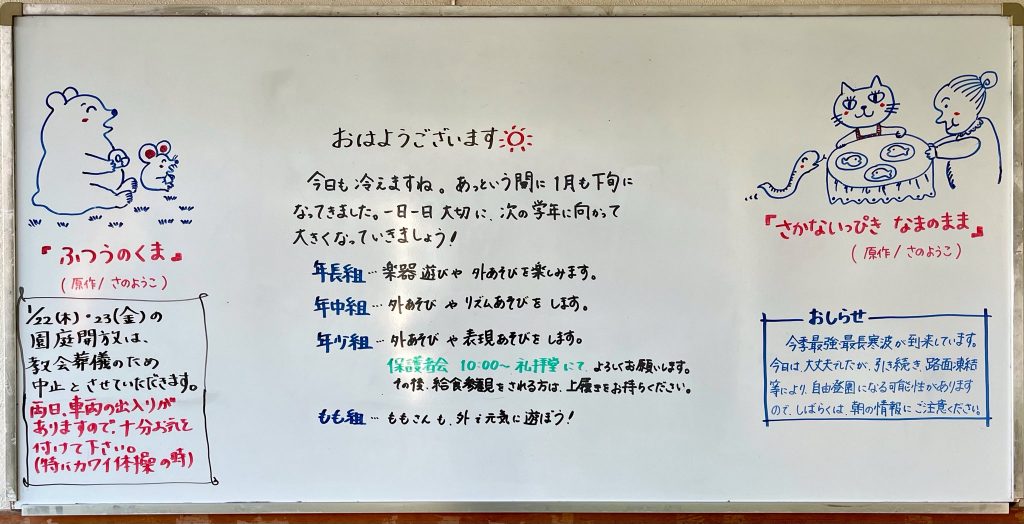 おはようございます
今日も冷えますね。あっという間に1月も下旬に
なってきました。一日一日大切に、次の学年に向かって
大きくなっていきましょう!
年長組…楽器遊びや外あそびを楽しみます。
年中組…外あそびやリズムあそびをします。
年少組…外あそびや表現あそびをします。
保護者会 10:00〜礼拝堂にて よろしくお願いします。
その後、給食参観をされる方は、上履きをお持ちください。
もも組…ももさんも、外で元気に遊ぼう!
『ふつうのくま』
(原作/さのようこ)
1/22(木)・23(金)の
園庭開放は、
教会葬儀のため
中止とさせていただきます。
両日、車両の出入りが
ありますので、十分お気を
付けて下さい。
(特にカワイ体操の時)
『さかないっぴき なまのまま』
(原作/さのようこ)
おしらせ
今季最強・最長寒波が到来しています。
今日は大丈夫でしたが、引き続き、路面凍結
等により、自由登園になる可能性があります
ので、しばらくは、朝の情報にご注意ください。